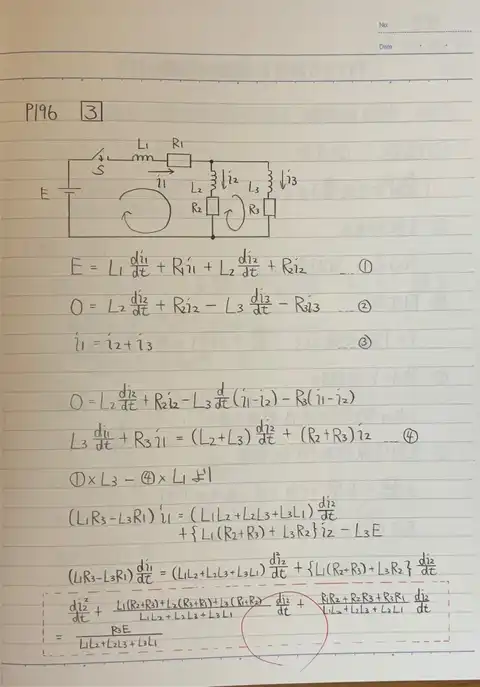 No.
Date
P196 3
L1 R1
S i1 L2 i2 L3 i3
E R2 R3
E = L1 di1/dt + R1i1 + L2 di2/dt + R2i2 ...①
0 = L2 di2/dt + R2i2 - L3 di3/dt - R3i3 ...②
i1 = i2 + i3 ③
0 = L2 di2/dt + R2i2 - L3 d/dt (i1-i2) - R3(i1-i2)
L3 di1/dt + R3i1 = (L2+L3) di2/dt + (R2+R3)i2 ④
①×L3 - ④×L1 より
(L1R3-L3R1) i1 = (L1L2+L2L3+L3L1) di2/dt
+ {L1(R2+R3) + L3R2} i2 - L3E
(L1R3-L3R1) di1/dt = (L1L2+L2L3+L3L1) di2²/dt + {L1(R2+R3)+L3R2} di2/dt
di2²/dt + L1(R2+R3)+L2(R3+R1)+L3(R1+R2)/L1L2+L2L3+L3L1 di2/dt + R1R2+R2R3+R3R1/L1L2+L2L3+L3L1 di2/dt
= R3E/L1L2+L2L3+L3L1